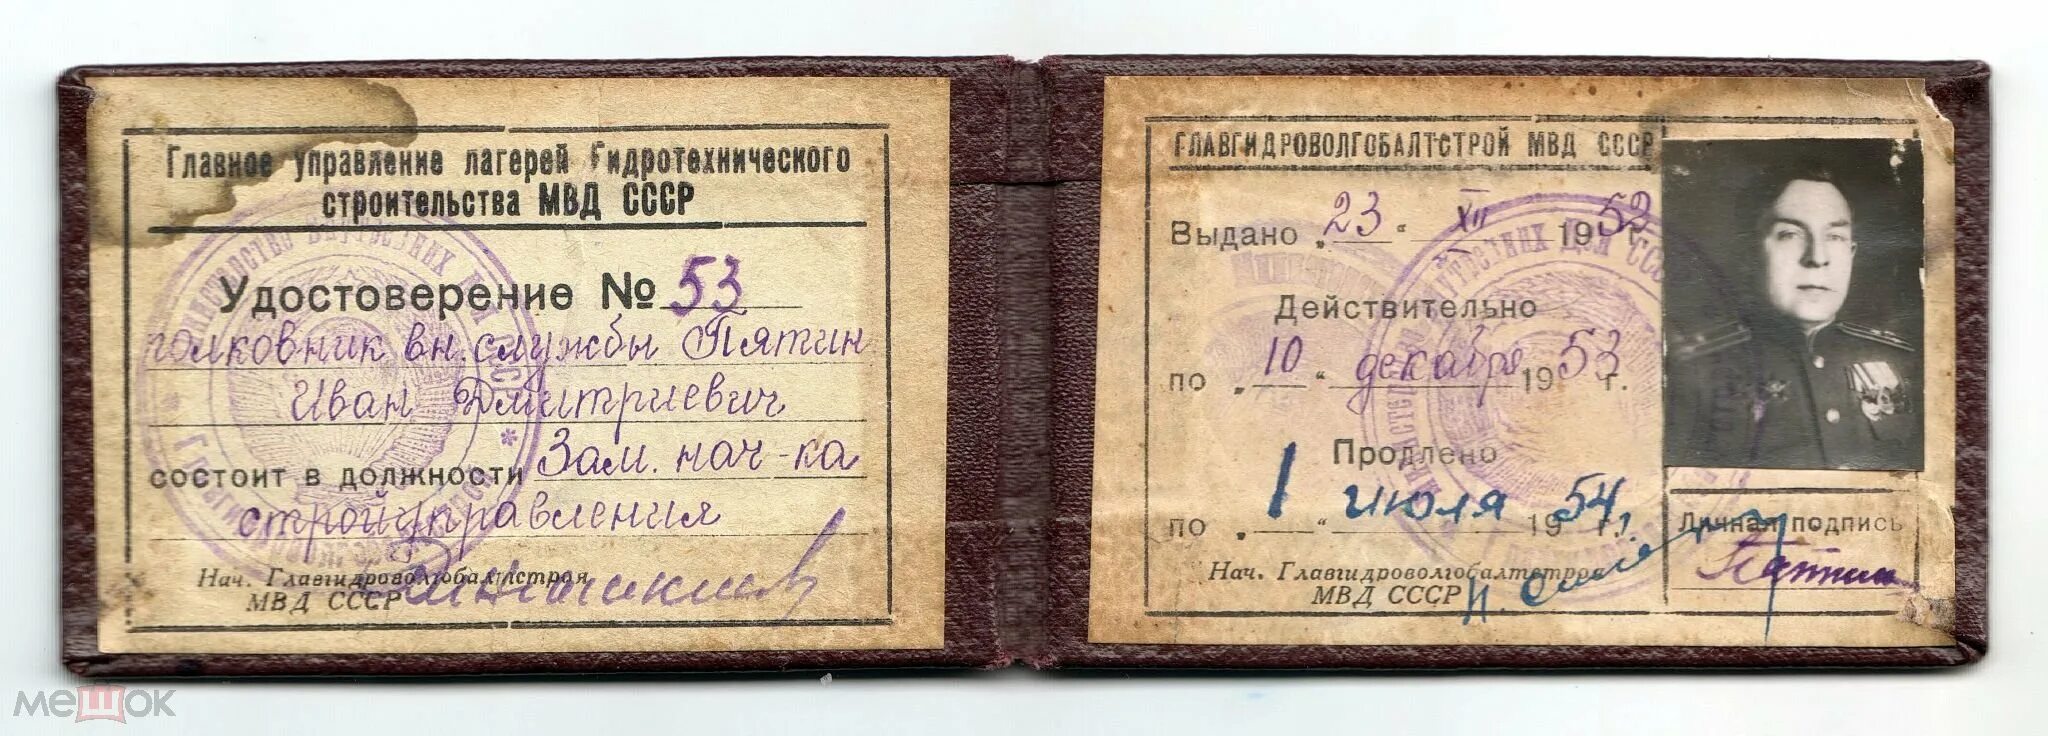 Главное управление лагерей Гидротехнического
строительства МВД СССР
Удостоверение № 53
полковник вн. службы Пятин
Иван Дмитриевич
состоит в должности Зам. нач-ка
стройуправления
Нач. Главгидроволгобалтстроя
МВД СССР
ГЛАВГИДРОВОЛГОБАЛТСТРОЙ МВД СССР
Выдано „23“ XII 1952 г.
Действительно
по „10“ декабря 1953 г.
Продлено
по „1“ июля 1954 г.
Нач. Главгидроволгобалтстроя
МВД СССР
Личная подпись
Пятин
мешок